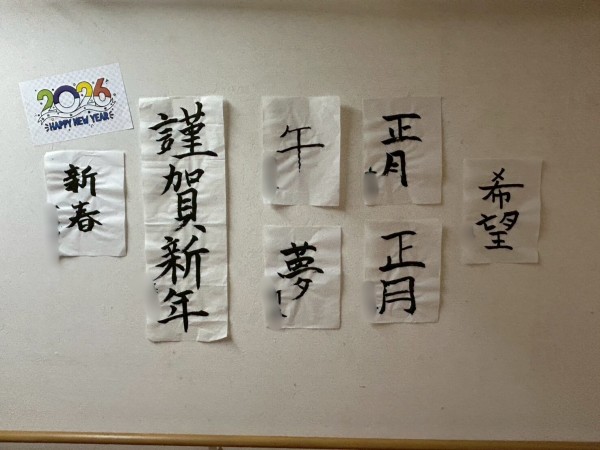 2026
HAPPY NEW YEAR
新春
謹賀新年
午
夢
正月
正月
希望